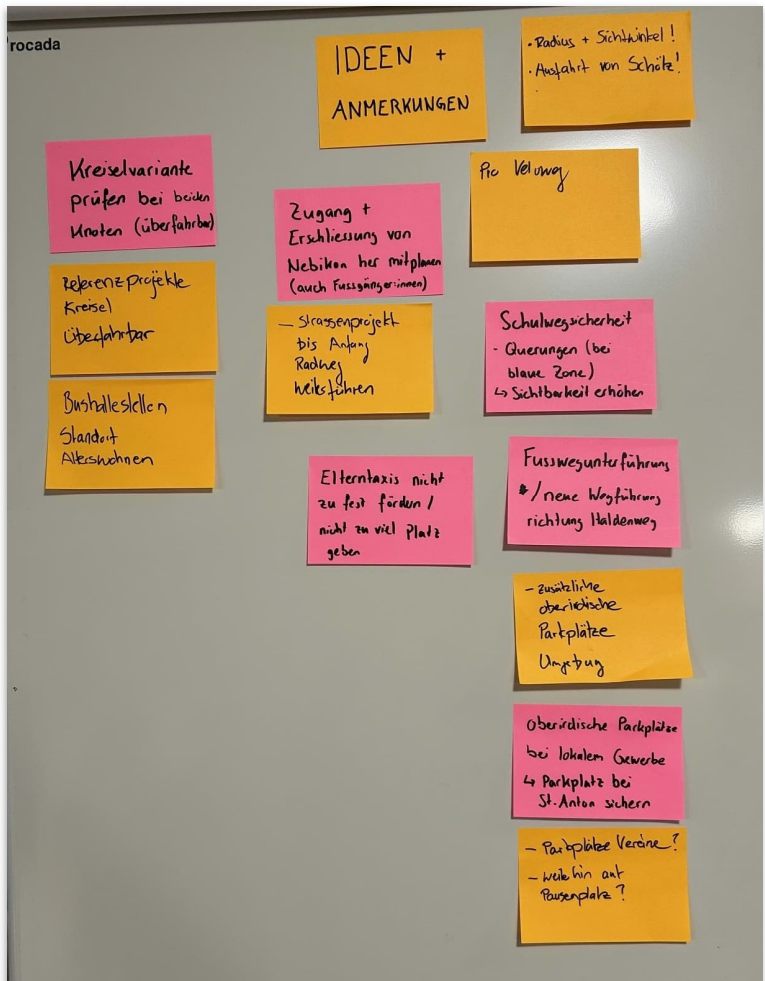 rocada
IDEEN +
ANMERKUNGEN
· Radius + Sichtwinkel!
· Ausfahrt von Schötz!
Kreiselvariante
prüfen bei beiden
Knoten (überfahrbar)
Referenzprojekte
Kreisel
Überfahrbar
Bushaltestellen
Standort
Alterswohnen
Zugang +
Erschliessung von
Nebikon her mitplanen
(auch Fussgänger:innen)
– Strassenprojekt
bis Anfang
Radweg
weiterführen
Elterntaxis nicht
zu fest fördern /
nicht zu viel Platz
geben
Pro Veloweg
Schulwegsicherheit
- Querungen (bei
blaue Zone)
↳ Sichtbarkeit erhöhen
Fusswegunterführung
/ neue Wegführung
richtung Haldenweg
– zusätzliche
oberirdische
Parkplätze
Umgebung
oberirdische Parkplätze
bei lokalem Gewerbe
↳ Parkplatz bei
St. Anton sichern
– Parkplätze Vereine?
– weiterhin auf
Pausenplatz?